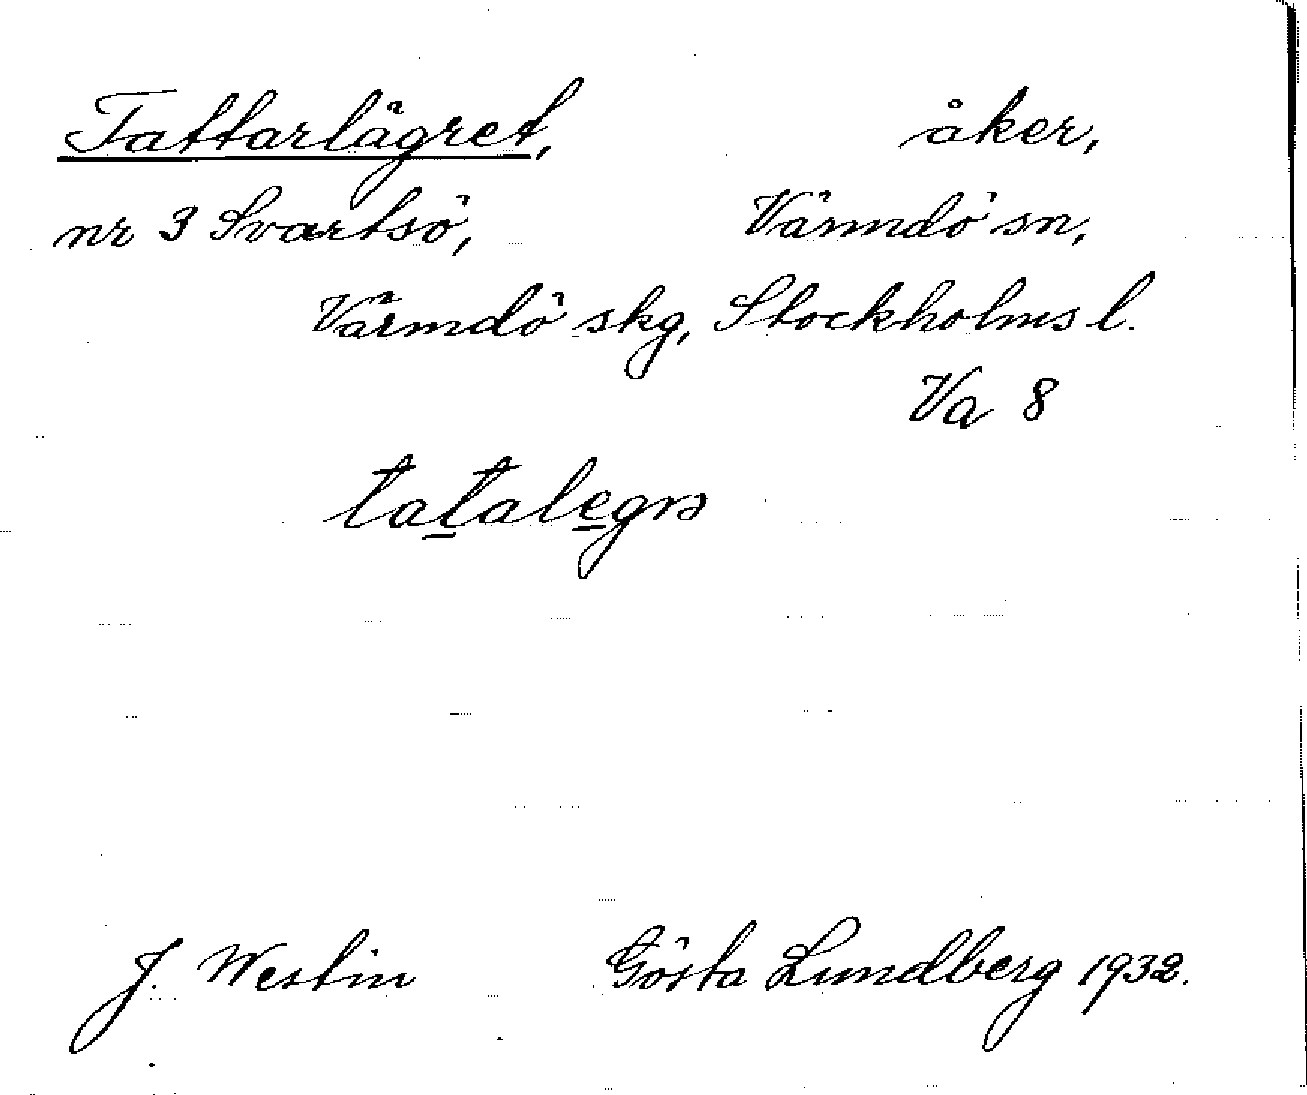 Tattarlägret, åker,
nr 3 Svartsö, Värmdö sn,
Värmdö skg, Stockholms l.
Va 8
tatalegrə
J. Westin Gösta Lundberg 1932.